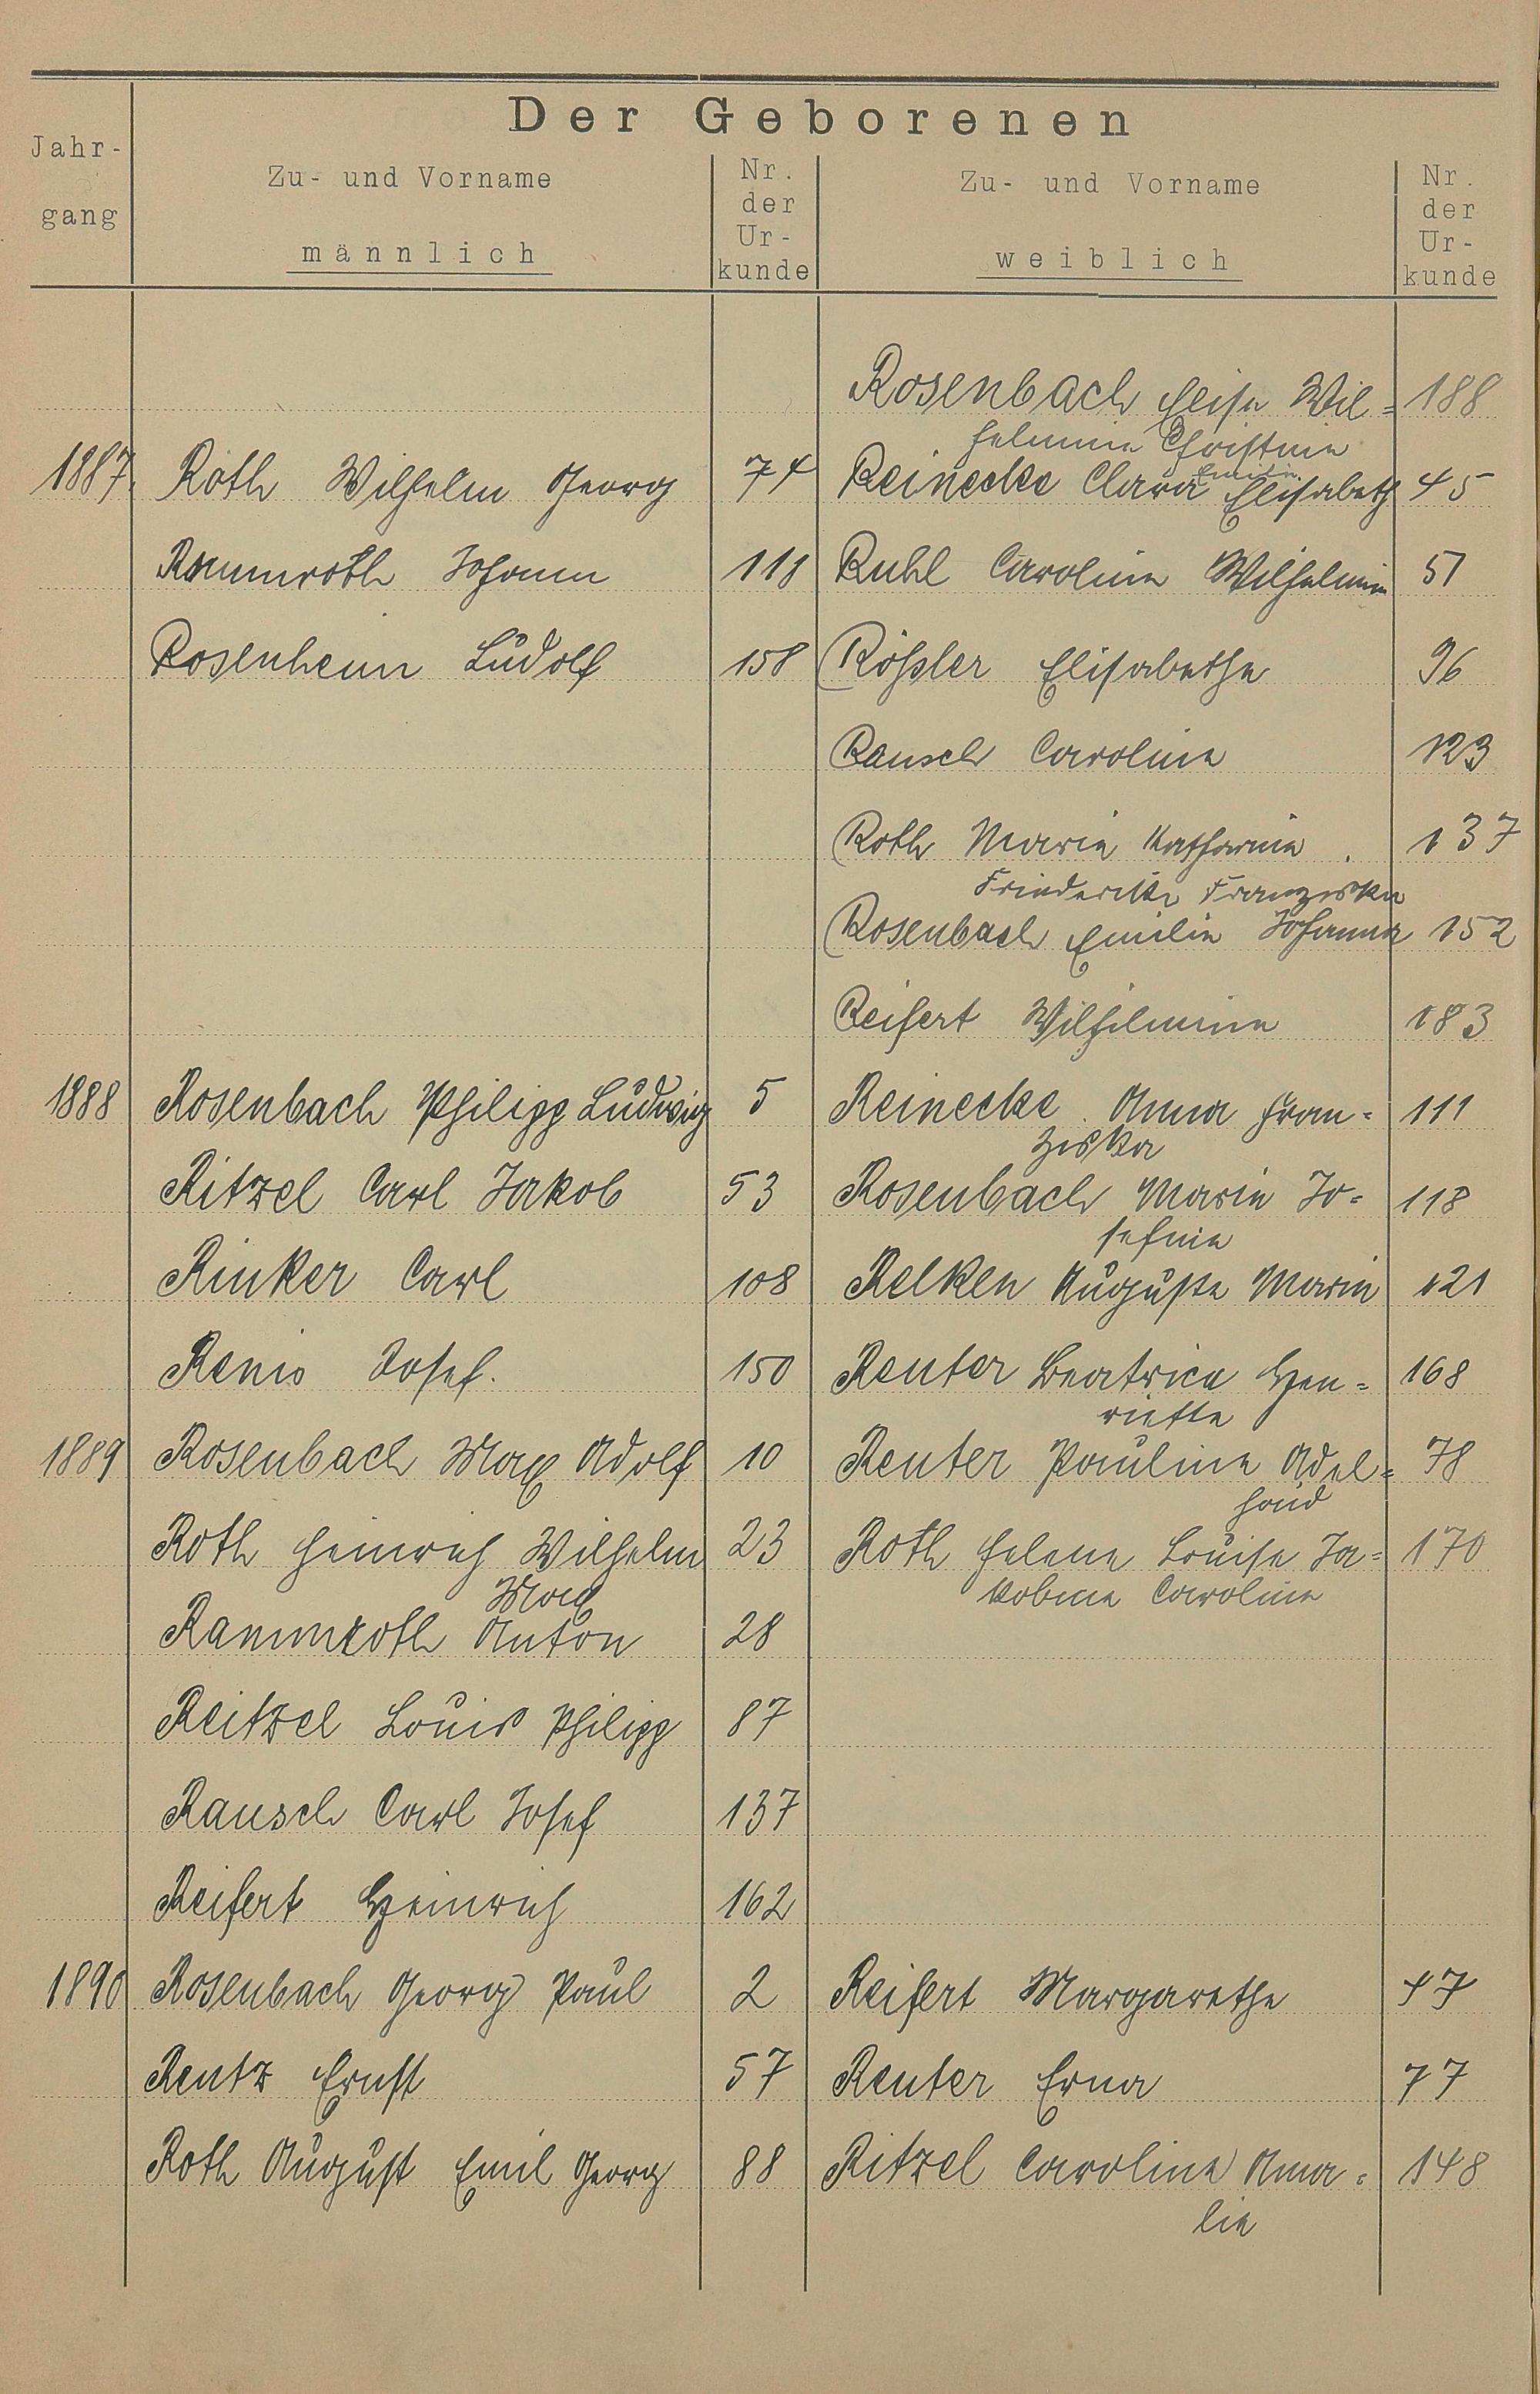 Der Geborenen
Jahr-
gang
Zu- und Vorname
männlich
Nr.
der
Ur-
kunde
Zu- und Vorname
weiblich
Nr.
der
Ur-
kunde
Rosenbach Elise Wil= 188
helmine Christine
1887. Roth Wilhelm Georg 74 Reinecke Clara Emilie Elisabeth 45
Rammroth Johann 111 Ruhl Caroline Wilhelmine 51
Rosenheim Ludolf 158 Rößler Elisabethe 96
Rausch Caroline 123
Roth Marie Katharine 137
Friederike Franziska
Rosenbach Emilie Johanna 152
Reifert Wilhelmine 183
1888 Rosenbach Philipp Ludwig 5 Reinecke Anna Fran= 111
ziska
Ritzel Carl Jakob 53 Rosenbach Marie Jo= 118
sefine
Rinker Carl 108 Relken Auguste Marie 121
Renis Josef. 150 Reuter Beatrice Hen= 168
riette
1889 Rosenbach Max Adolf 10 Reuter Pauline Adel= 78
haid
Roth Heinrich Wilhelm 23 Roth Helene Louise Ja= 170
Max kobine Caroline
Rammroth Anton 28
Reitzel Louis Philipp 87
Rausch Carl Josef 137
Reifert Heinrich 162
1890 Rosenbach Georg Paul 2 Reifert Margarethe 47
Rentz Ernst 57 Reuter Erna 77
Roth August Emil Georg 88 Ritzel Caroline Ama= 148
lie